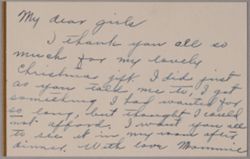 My dear girls
I thank you all so
much for my lovely
Christmas gift. I did just
as you told me to, I got
something I had wanted for
so long, but thought I could
not afford. I want you all
to see it in my room after
dinner. With love Mommie